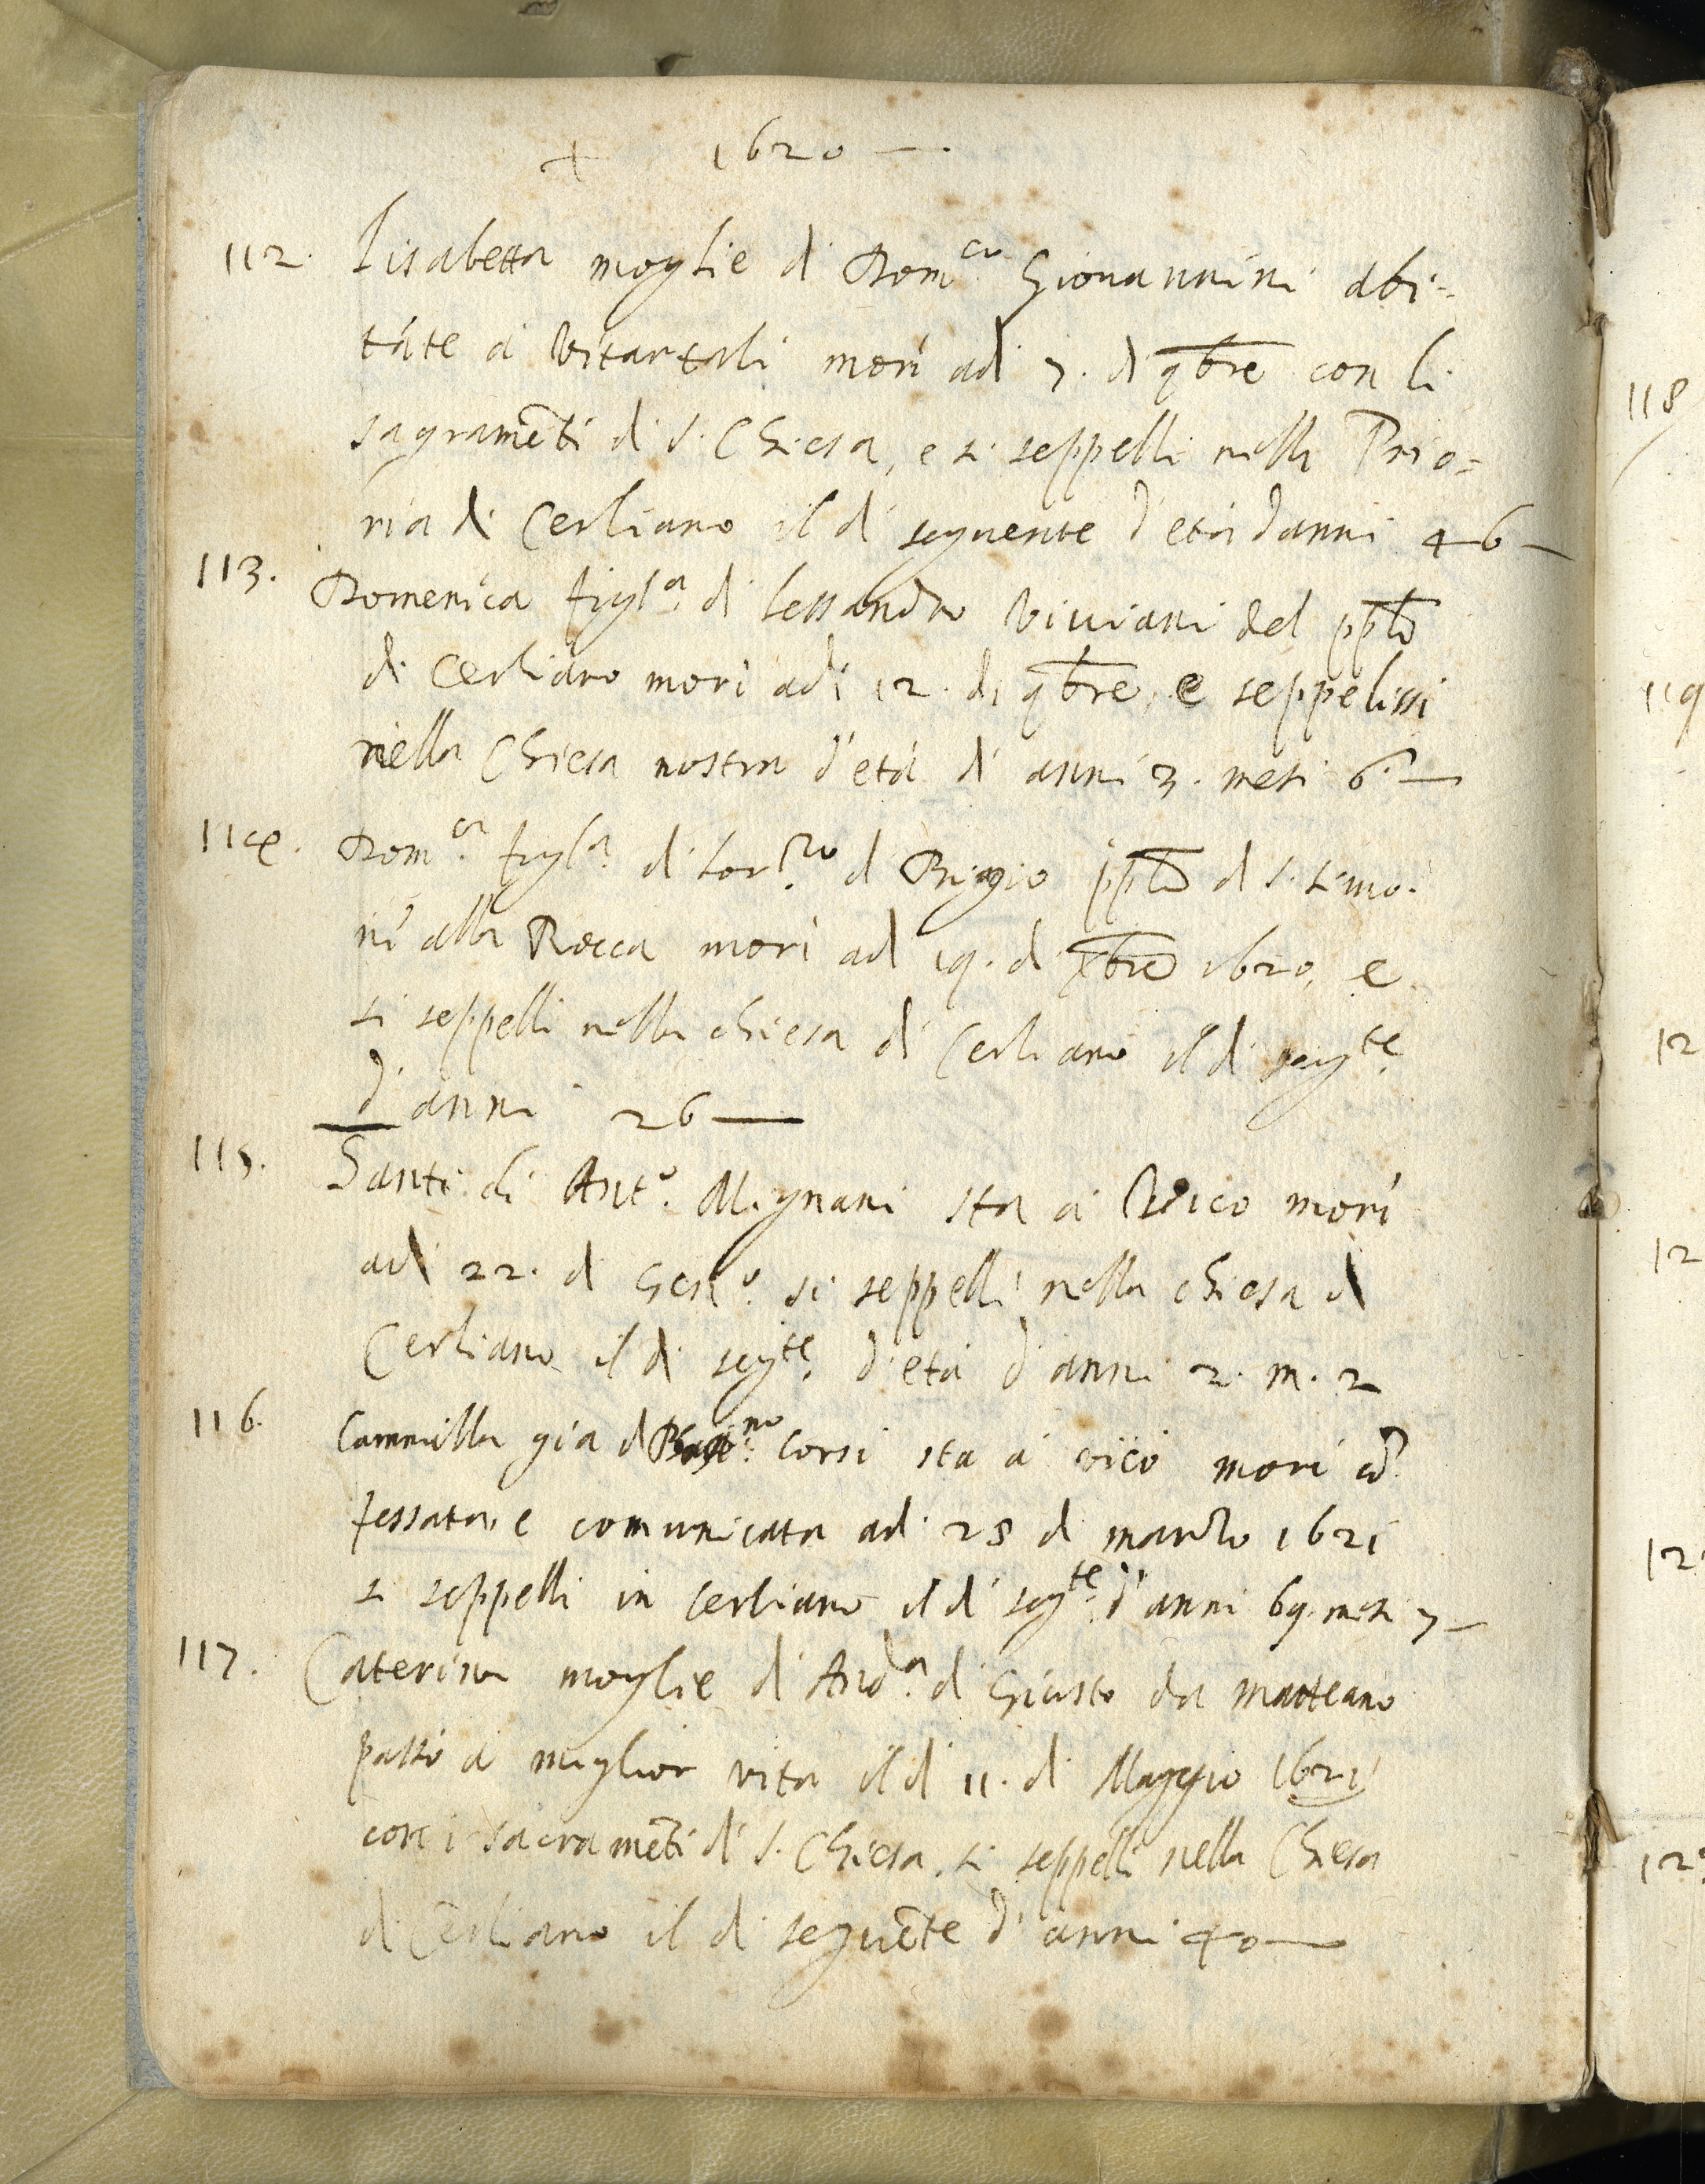 + 1620 —.
112. Lisabetta moglie di Dom.co Giovannini abi=
tāte a Vitartali morì adi 7. di 9bre con li
sagramēti di S. Chiesa, e si seppellì nella Prio=
ria di Cerliano il dì seguente d'età d'anni 46 —
113. Domenica figl.a di Lessandro Viviani del pplo
di Cerliano morì adi 12. di 9bre, e seppelissi
nella Chiesa nostra d'età di anni 3. mesi 6. —
114. Dom.ca figl.a di Lor.zo di Biagio pplo di S. Simo.
ni alla Rocca morì adi 19. di Xbre 1620, e
si seppellì nella chiesa di Cerliano il dì seg.te
d'anni 26 —
115. Santi di Ant.o Mignani sta a Vico morì
adi 22. di Gen.o si seppellì nella chiesa di
Cerliano il dì seg.te d'età d'anni 2. m. 2
116. Cammilla già di Corsi sta a vico morì cō
fessata, e comunicata adi 28 di marzo 1621
si seppellì in Cerliano il dì seg.te d'anni 69. mesi 7 —
117. Caterina moglie di And.a di Giusto da Matteano
passò a miglior vita il dì 11. di Maggio 1621
con i sacramēti di S. Chiesa. si seppellì nella Chiesa
di Cerliano il dì seguēte d'anni 40 —
118
119
12
12
12
12